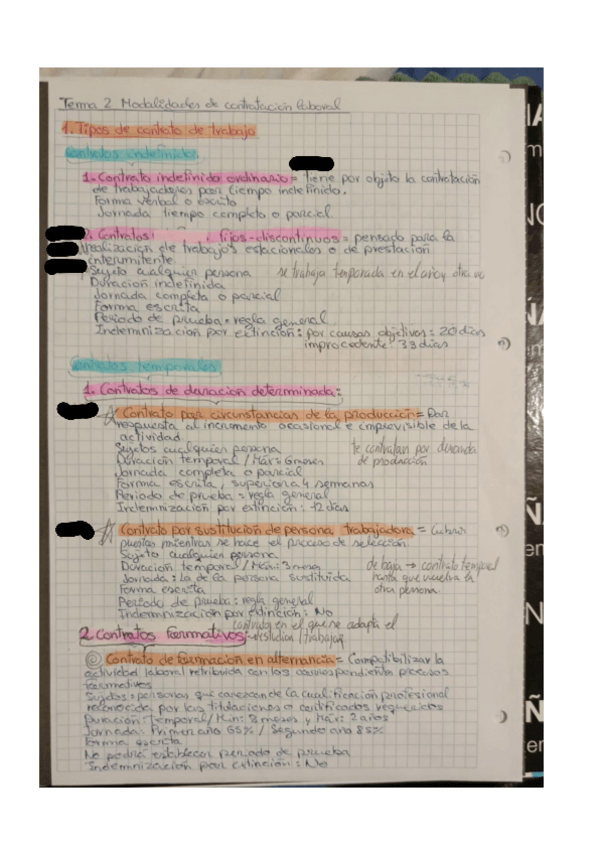 Tema 2 Modalidades de contratación laboral
1. Tipos de contrato de trabajo
Contratos indefinido
1. Contrato indefinido ordinario = tiene por objeto la contratación
de trabajadores por tiempo indefinido.
Forma verbal o escrito
Jornada tiempo completo o parcial.
2. Contratos fijos-discontinuos = pensado para la
realización de trabajos estacionales o de prestación
intermitente
Sujeto cualquier persona se trabaja temporada en el año y otra no
Duración indefinida
Jornada completa o parcial
Forma escrita
Periodo de prueba = regla general
Indemnización por extinción: por causas objetivos: 20 días
improcedente 33 días
Contratos temporales
1. Contratos de duración determinada:
Contrato por circunstancias de la producción = Dar
respuesta al incremento ocasional e imprevisible de la
actividad.
Sujetos cualquier persona te contratan por demanda
de producción
Duración temporal / Máx: 6 meses
Jornada completa o parcial
Forma escrita, superior a 4 semanas
Periodo de prueba = regla general
Indemnización por extinción: 12 días
Contrato por sustitución de persona trabajadora = Cubrir
puestos mientras se hace el proceso de selección
Sujeto cualquier persona
Duración temporal / Máx: 3 meses de baja → contrato temporal
Jornada: la de la persona sustituida hasta que vuelva la
Forma escrita otra persona
Periodo de prueba: regla general
Indemnización por extinción: No
contratos en el que se adapta el
2. Contratos Formativos: estudiar / trabajar
Contrato de formación en alternancia = Compatibilizar la
actividad laboral retribuida con los correspondiente procesos
formativos
Sujetos = personas que carezcan de la cualificación profesional
reconocida por las titulaciones o certificados requeridos
Duración: Temporal / Mín: 3 meses y Máx: 2 años
Jornada: Primer año 65% / Segundo año 85%
Forma escrita
No podrá establecer periodo de prueba
Indemnización por extinción: No